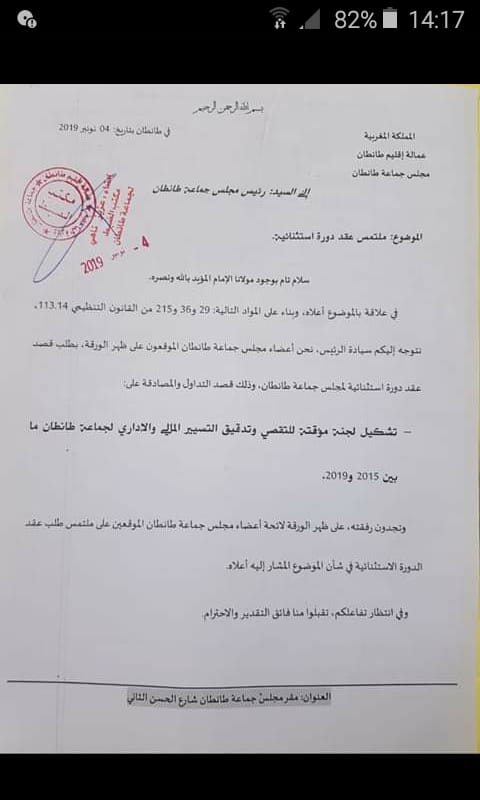 82% 14:17
بسم الله الرحمن الرحيم
المملكة المغربية
عمالة إقليم طانطان
مجلس جماعة طانطان
في طانطان بتاريخ: 04 نونبر 2019
إلى السيد: رئيس مجلس جماعة طانطان
مكتب الضبط
لجماعة طانطان
4 - 2019
الموضوع: ملتمس عقد دورة استثنائية.
سلام تام بوجود مولانا الإمام المؤيد بالله ونصره.
في علاقة بالموضوع أعلاه، وبناء على المواد التالية: 29 و36 و215 من القانون التنظيمي 113.14،
نتوجه إليكم سيادة الرئيس، نحن أعضاء مجلس جماعة طانطان الموقعون على ظهر الورقة، بطلب قصد
عقد دورة استثنائية لمجلس جماعة طانطان، وذلك قصد التداول والمصادقة على:
– تشكيل لجنة مؤقتة للتقصي وتدقيق التسيير المالي والإداري لجماعة طانطان ما
بين 2015 و2019.
وتجدون رفقته، على ظهر الورقة لائحة أعضاء مجلس جماعة طانطان الموقعين على ملتمس طلب عقد
الدورة الاستثنائية في شأن الموضوع المشار إليه أعلاه.
وفي انتظار تفاعلكم، تقبلوا منا فائق التقدير والاحترام.
العنوان: مقر مجلس جماعة طانطان شارع الحسن الثاني